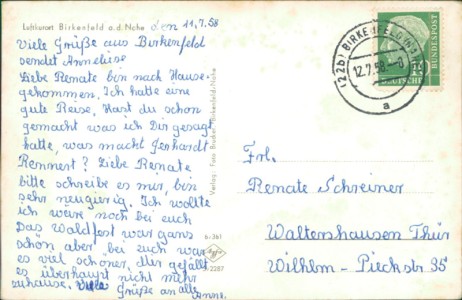 Luftkurort Birkenfeld a.d. Nahe
den 11.7.58
Viele Grüße aus Birkenfeld
sendet Anneliese
Liebe Renate bin nach Hause
gekommen. Ich hatte eine
gute Reise, Hast du schon
gemacht was ich Dir gesagt
hatte, was macht Genhardt
Rennert? Liebe Renate
bitte schreibe es mir, bin
sehr neugierig. Ich wollte
ich wäre noch bei euch
Das Waldfest war ganz
schön aber bei euch war
es viel schöner, Mir gefällt
es überhaupt nicht mehr
zuhause. Viele Grüße an alle
Anna.
Verlag: Foto Brucker, Birkenfeld-Nahe
b-361
2287
(22b) BIRKENFELD (NAHE)
12.7.58
a
10
DEUTSCHE
BUNDESPOST
Frl.
Renate Schreiner
Waltershausen Thür
Wilhelm-Pieck-str 35